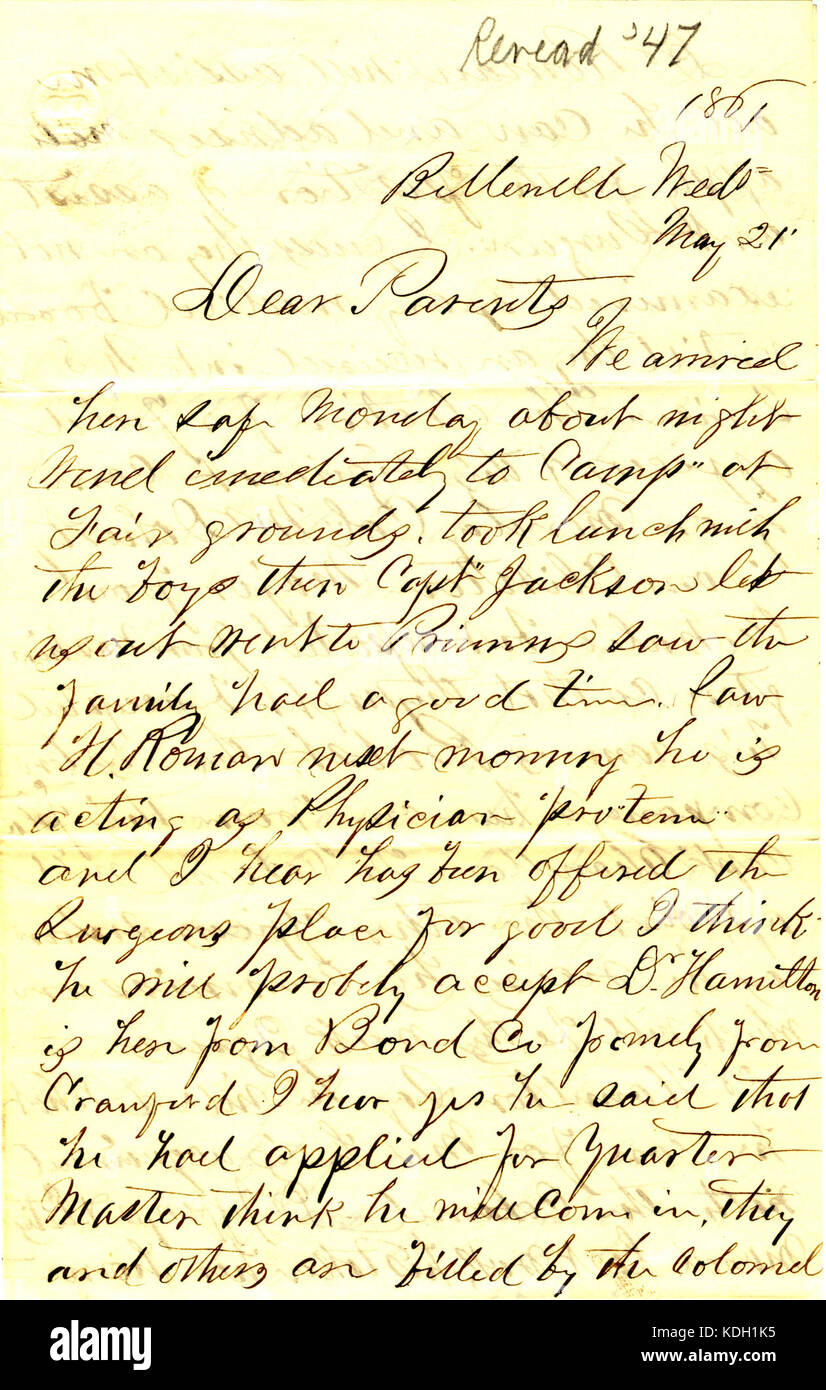 Reread '47
1861
Belleville Wed
May 21
Dear Parents
We arrived
here safe Monday about night
Wend imediately to Camp" at
Fair grounds. took lunch with
the boys then Capt" Jackson let
us out went to saw the
family had a good time. Saw
H. Roman next morning he is
acting as Physician "protem"
and I hear has been offered the
Surgeons place for good I think
he will probely accept Dr Hamilton
is here from Bond Co fromely from
Cranford I hear yes he said that
he had applied for Quarter
Master think he will Come in, they
and others are filled by the Colonel
alamy
Image ID: KDH1K5
www.alamy.com